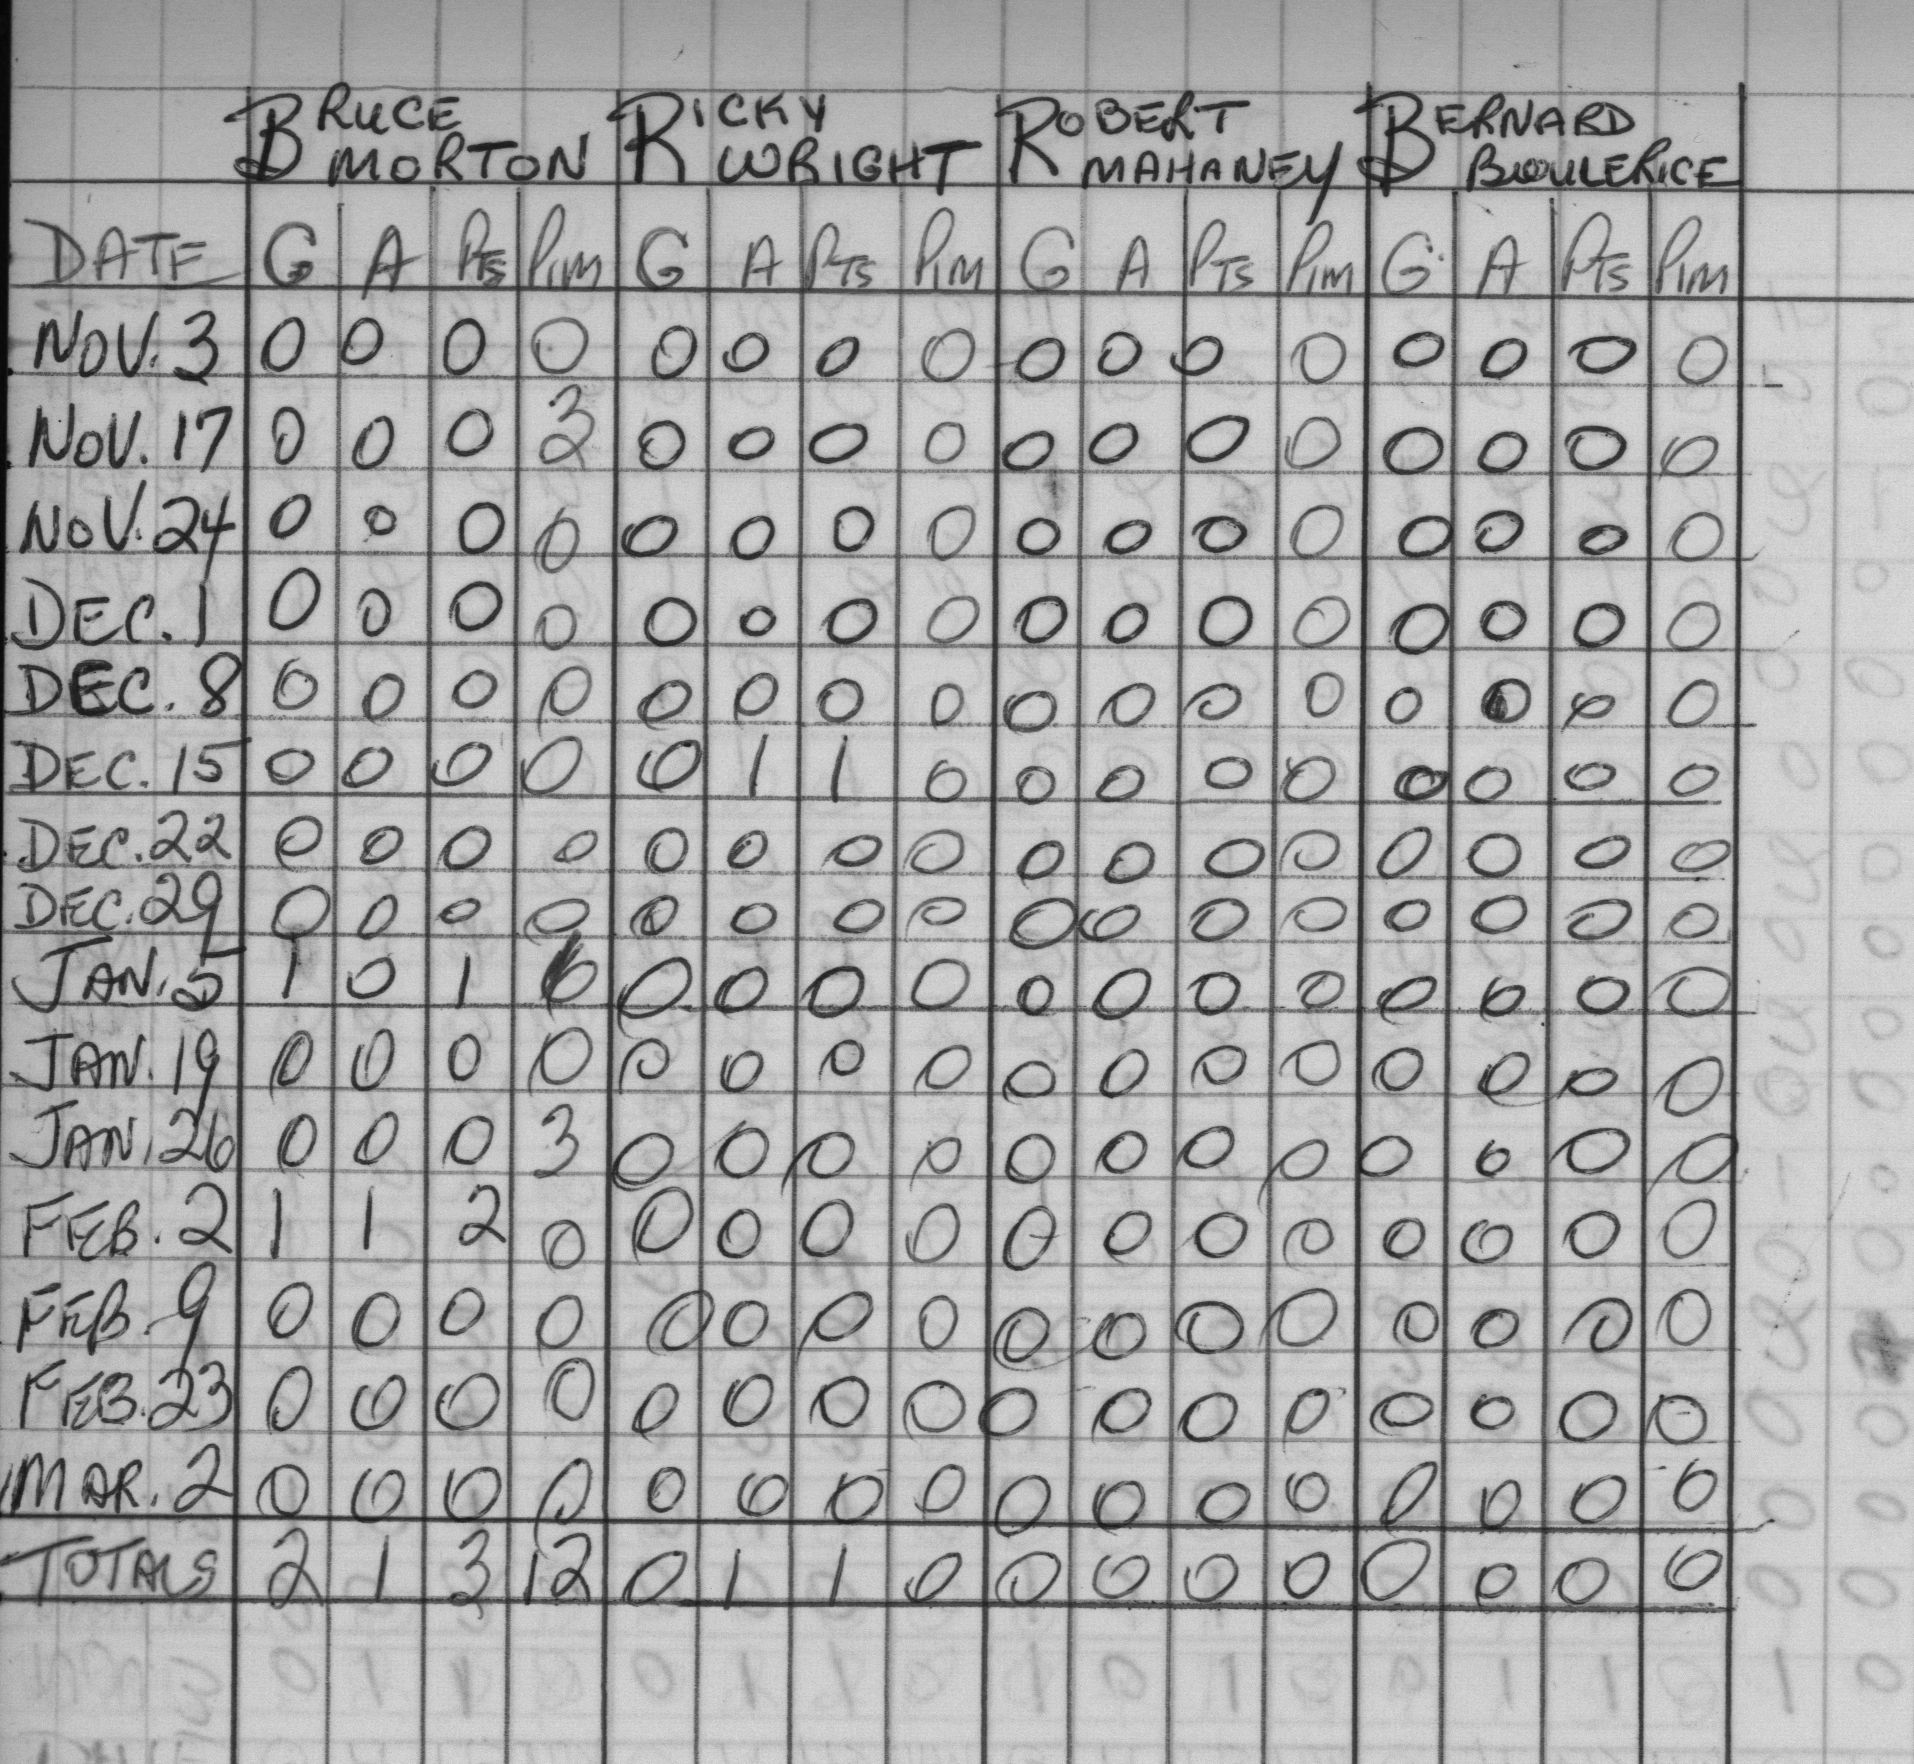 BRUCE MORTON RICKY WRIGHT ROBERT MAHANEY BERNARD BOULERICE
DATE G A PTS PIM G A PTS PIM G A PTS PIM G A PTS PIM
NOV. 3 0 0 0 0 0 0 0 0 0 0 0 0 0 0 0 0
NOV. 17 0 0 0 3 2 0 0 0 0 0 0 0 0 0 0 0 0
NOV. 24 0 0 0 0 0 0 0 0 0 0 0 0 0 0 0 0
DEC. 1 0 0 0 0 0 0 0 0 0 0 0 0 0 0 0 0
DEC. 8 0 0 0 0 0 0 0 0 0 0 0 0 0 0 0 0
DEC. 15 0 0 0 0 0 1 1 0 0 0 0 0 0 0 0 0
DEC. 22 0 0 0 0 0 0 0 0 0 0 0 0 0 0 0 0
DEC. 29 0 0 0 0 0 0 0 0 0 0 0 0 0 0 0 0
JAN. 5 1 0 1 6 0 0 0 0 0 0 0 0 0 0 0 0
JAN. 19 0 0 0 0 0 0 0 0 0 0 0 0 0 0 0 0
JAN. 26 0 0 0 3 0 0 0 0 0 0 0 0 0 0 0 0
FEB. 2 1 1 2 0 0 0 0 0 0 0 0 0 0 0 0 0
FEB. 9 0 0 0 0 0 0 0 0 0 0 0 0 0 0 0 0
FEB. 23 0 0 0 0 0 0 0 0 0 0 0 0 0 0 0 0
MAR. 2 0 0 0 0 0 0 0 0 0 0 0 0 0 0 0 0
TOTALS 2 1 3 12 0 1 1 0 0 0 0 0 0 0 0 0